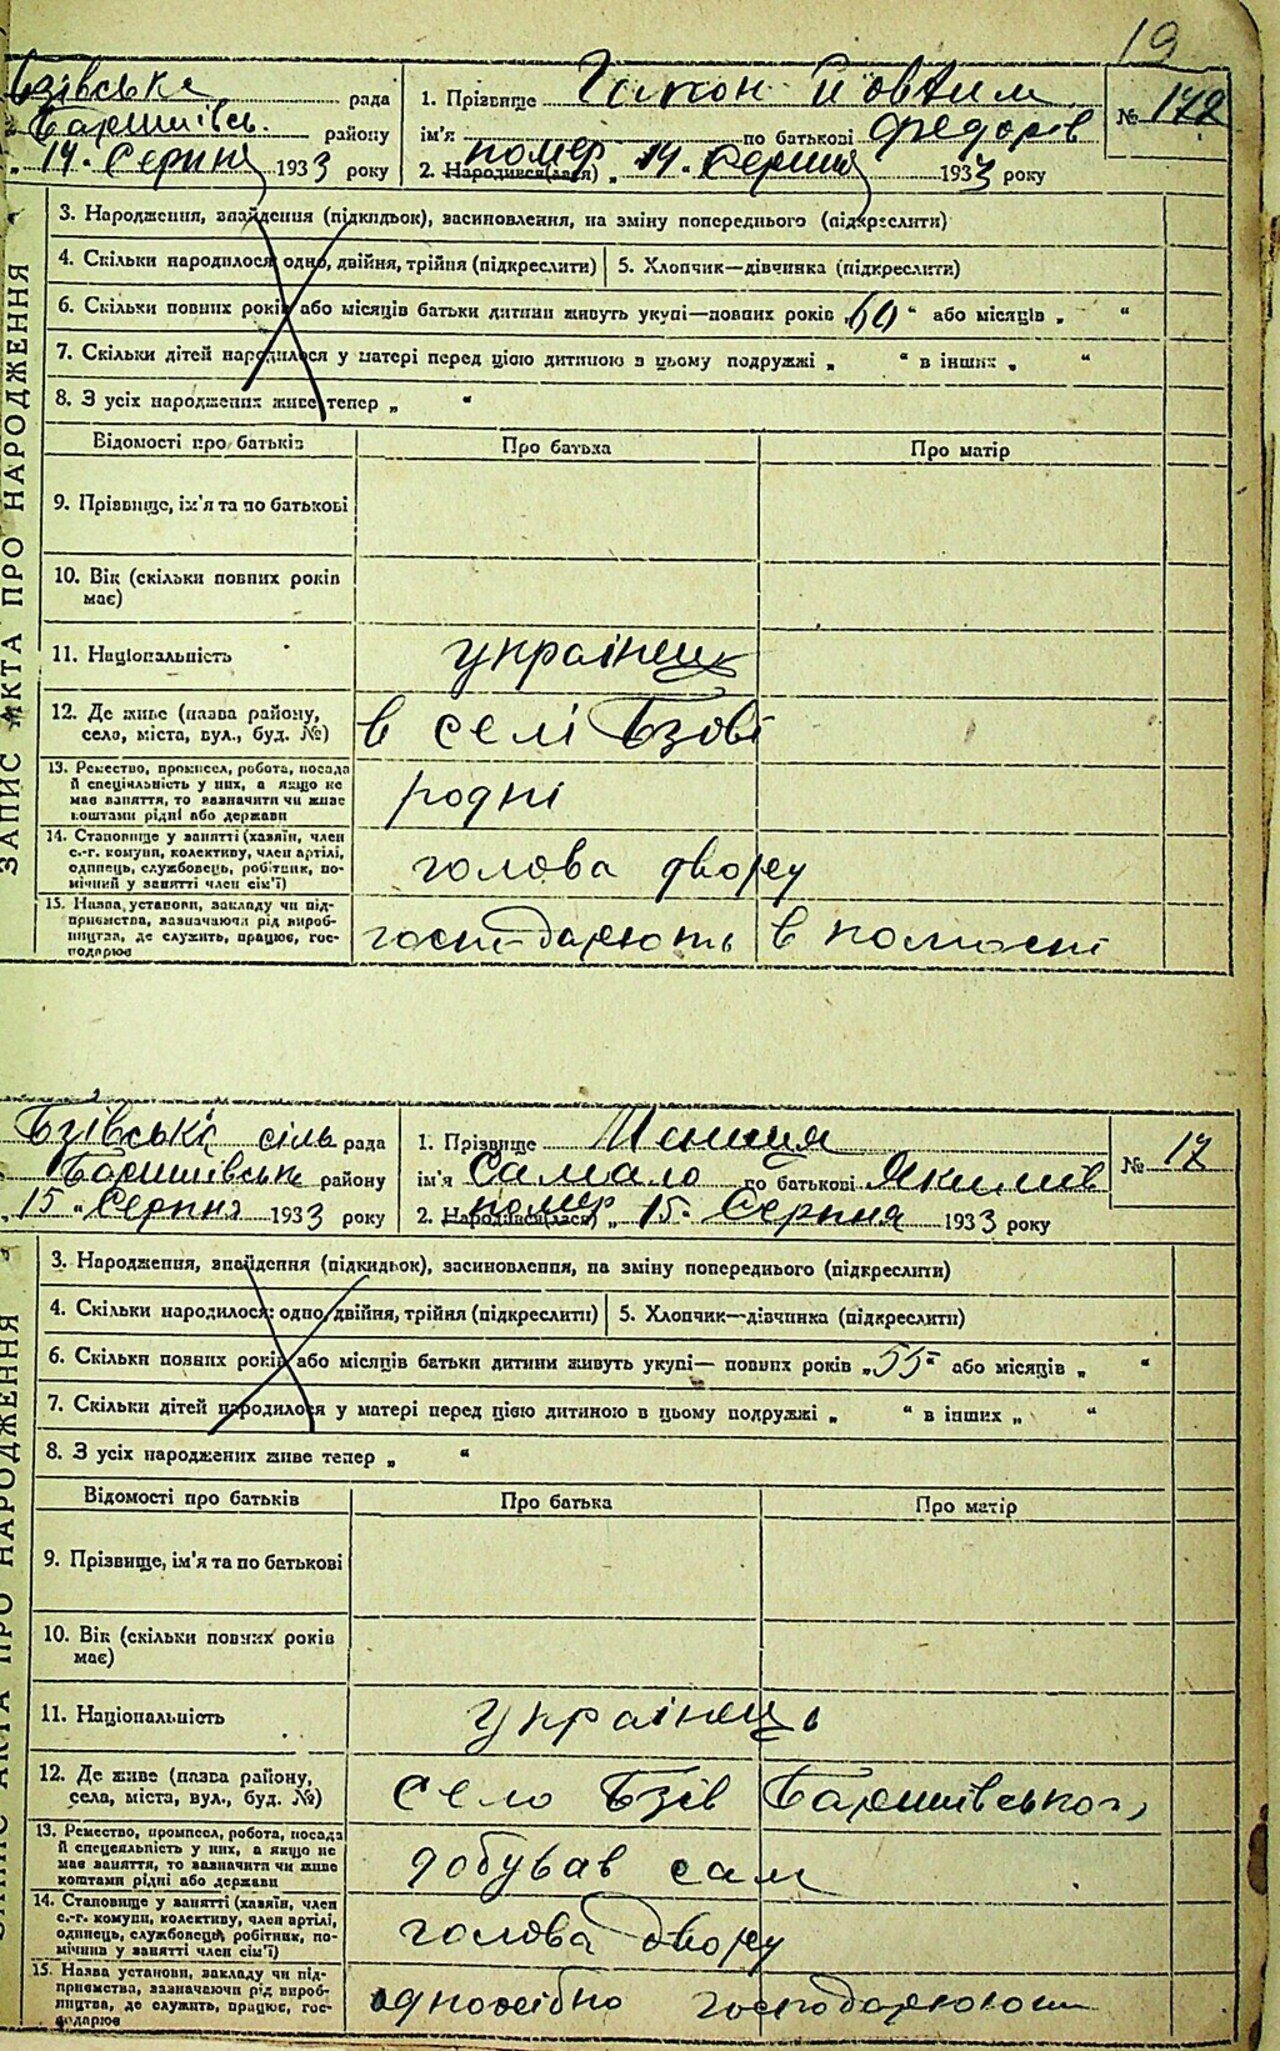 19
Бзівська рада
Баришівсь. району
„ 14. Серпня 1933 року
1. Прізвище Йовтим
ім'я по батькові Федорів
помер
2. Народився(лася) „ 14. Серпня 1933 року
№ 172
ЗАПИС АКТА ПРО НАРОДЖЕННЯ
3. Народження, знайдення (підкидьок), засиновлення, на зміну попереднього (підкреслити)
4. Скільки народилося: одно, двійня, трійня (підкреслити) 5. Хлопчик—дівчинка (підкреслити)
6. Скільки повних років або місяців батьки дитини живуть укупі—повних років „60“ або місяців „ “
7. Скільки дітей народилося у матері перед цією дитиною в цьому подружжі „ “ в інших „ “
8. З усіх народжених живе тепер „ “
Відомості про батьків Про батька Про матір
9. Прізвище, ім'я та по батькові
10. Вік (скільки повних років
має)
11. Національність українець
12. Де живе (назва району,
села, міста, вул., буд. №) в селі Бзові
13. Ремество, промисел, робота, посада
й спеціяльність у них, а якщо не
має заняття, то зазначити чи живе
коштами рідні або держави
родні
14. Становище у занятті (хазяїн, член
с.-г. комуни, колективу, член артілі,
одинець, службовець, робітник, по-
мічний у занятті член сім'ї)
голова двору
15. Назва, установи, закладу чи під-
приємства, зазначаючи рід вироб-
ництва, де служить, працює, гос-
подарює
господарють в
Бзівські сіль рада
Баришівськ району
„ 15 “ Серпня 1933 року
1. Прізвище
ім'я Самало по батькові Якимів
помер
2. Народився(лася) „ 15. Серпня 1933 року
№ 17
ЗАПИС АКТА ПРО НАРОДЖЕННЯ
3. Народження, знайдення (підкидьок), засиновлення, на зміну попереднього (підкреслити)
4. Скільки народилося: одно, двійня, трійня (підкреслити) 5. Хлопчик—дівчинка (підкреслити)
6. Скільки повних років або місяців батьки дитини живуть укупі— повних років „55“ або місяців „ “
7. Скільки дітей народилося у матері перед цією дитиною в цьому подружжі „ “ в інших „ “
8. З усіх народжених живе тепер „ “
Відомості про батьків Про батька Про матір
9. Прізвище, ім'я та по батькові
10. Вік (скільки повних років
має)
11. Національність українець
12. Де живе (назва району,
села, міста, вул., буд. №) село Бзів Баришівського
13. Ремество, промисел, робота, посада
й спеціяльність у них, а якщо не
має заняття, то зазначити чи живе
коштами рідні або держави
добував сам
14. Становище у занятті (хазяїн, член
с.-г. комуни, колективу, член артілі,
одинець, службовець, робітник, по-
мічний у занятті член сім'ї)
голова двору
15. Назва установи, закладу чи під-
приємства, зазначаючи рід вироб-
ництва, де служить, працює, гос-
подарює
одноосібно